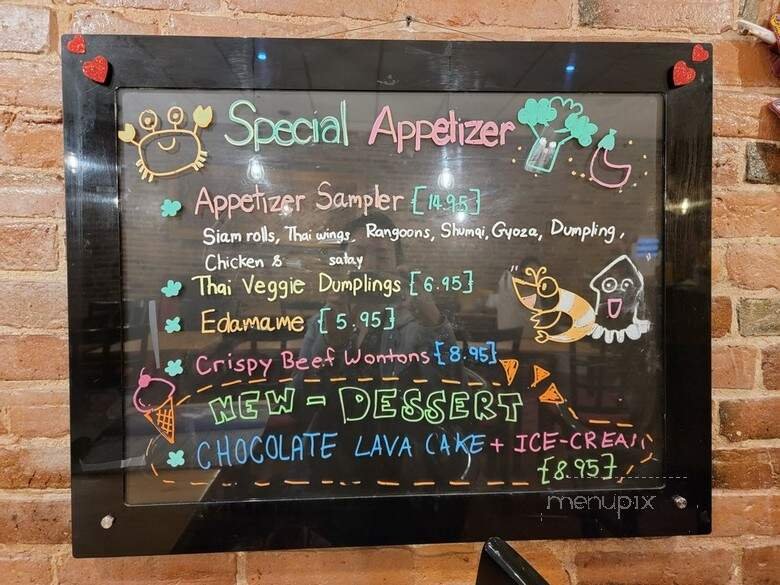 Special Appetizer
Appetizer Sampler {14.95}
Siam rolls, Thai wings, Rangoons, Shumai, Gyoza, Dumpling,
Chicken & satay
Thai Veggie Dumplings [6.95]
Edamame {5.95}
Crispy Beef Wontons {8.95}
NEW - DESSERT
CHOCOLATE LAVA CAKE + ICE-CREAM
{8.95}
menupix